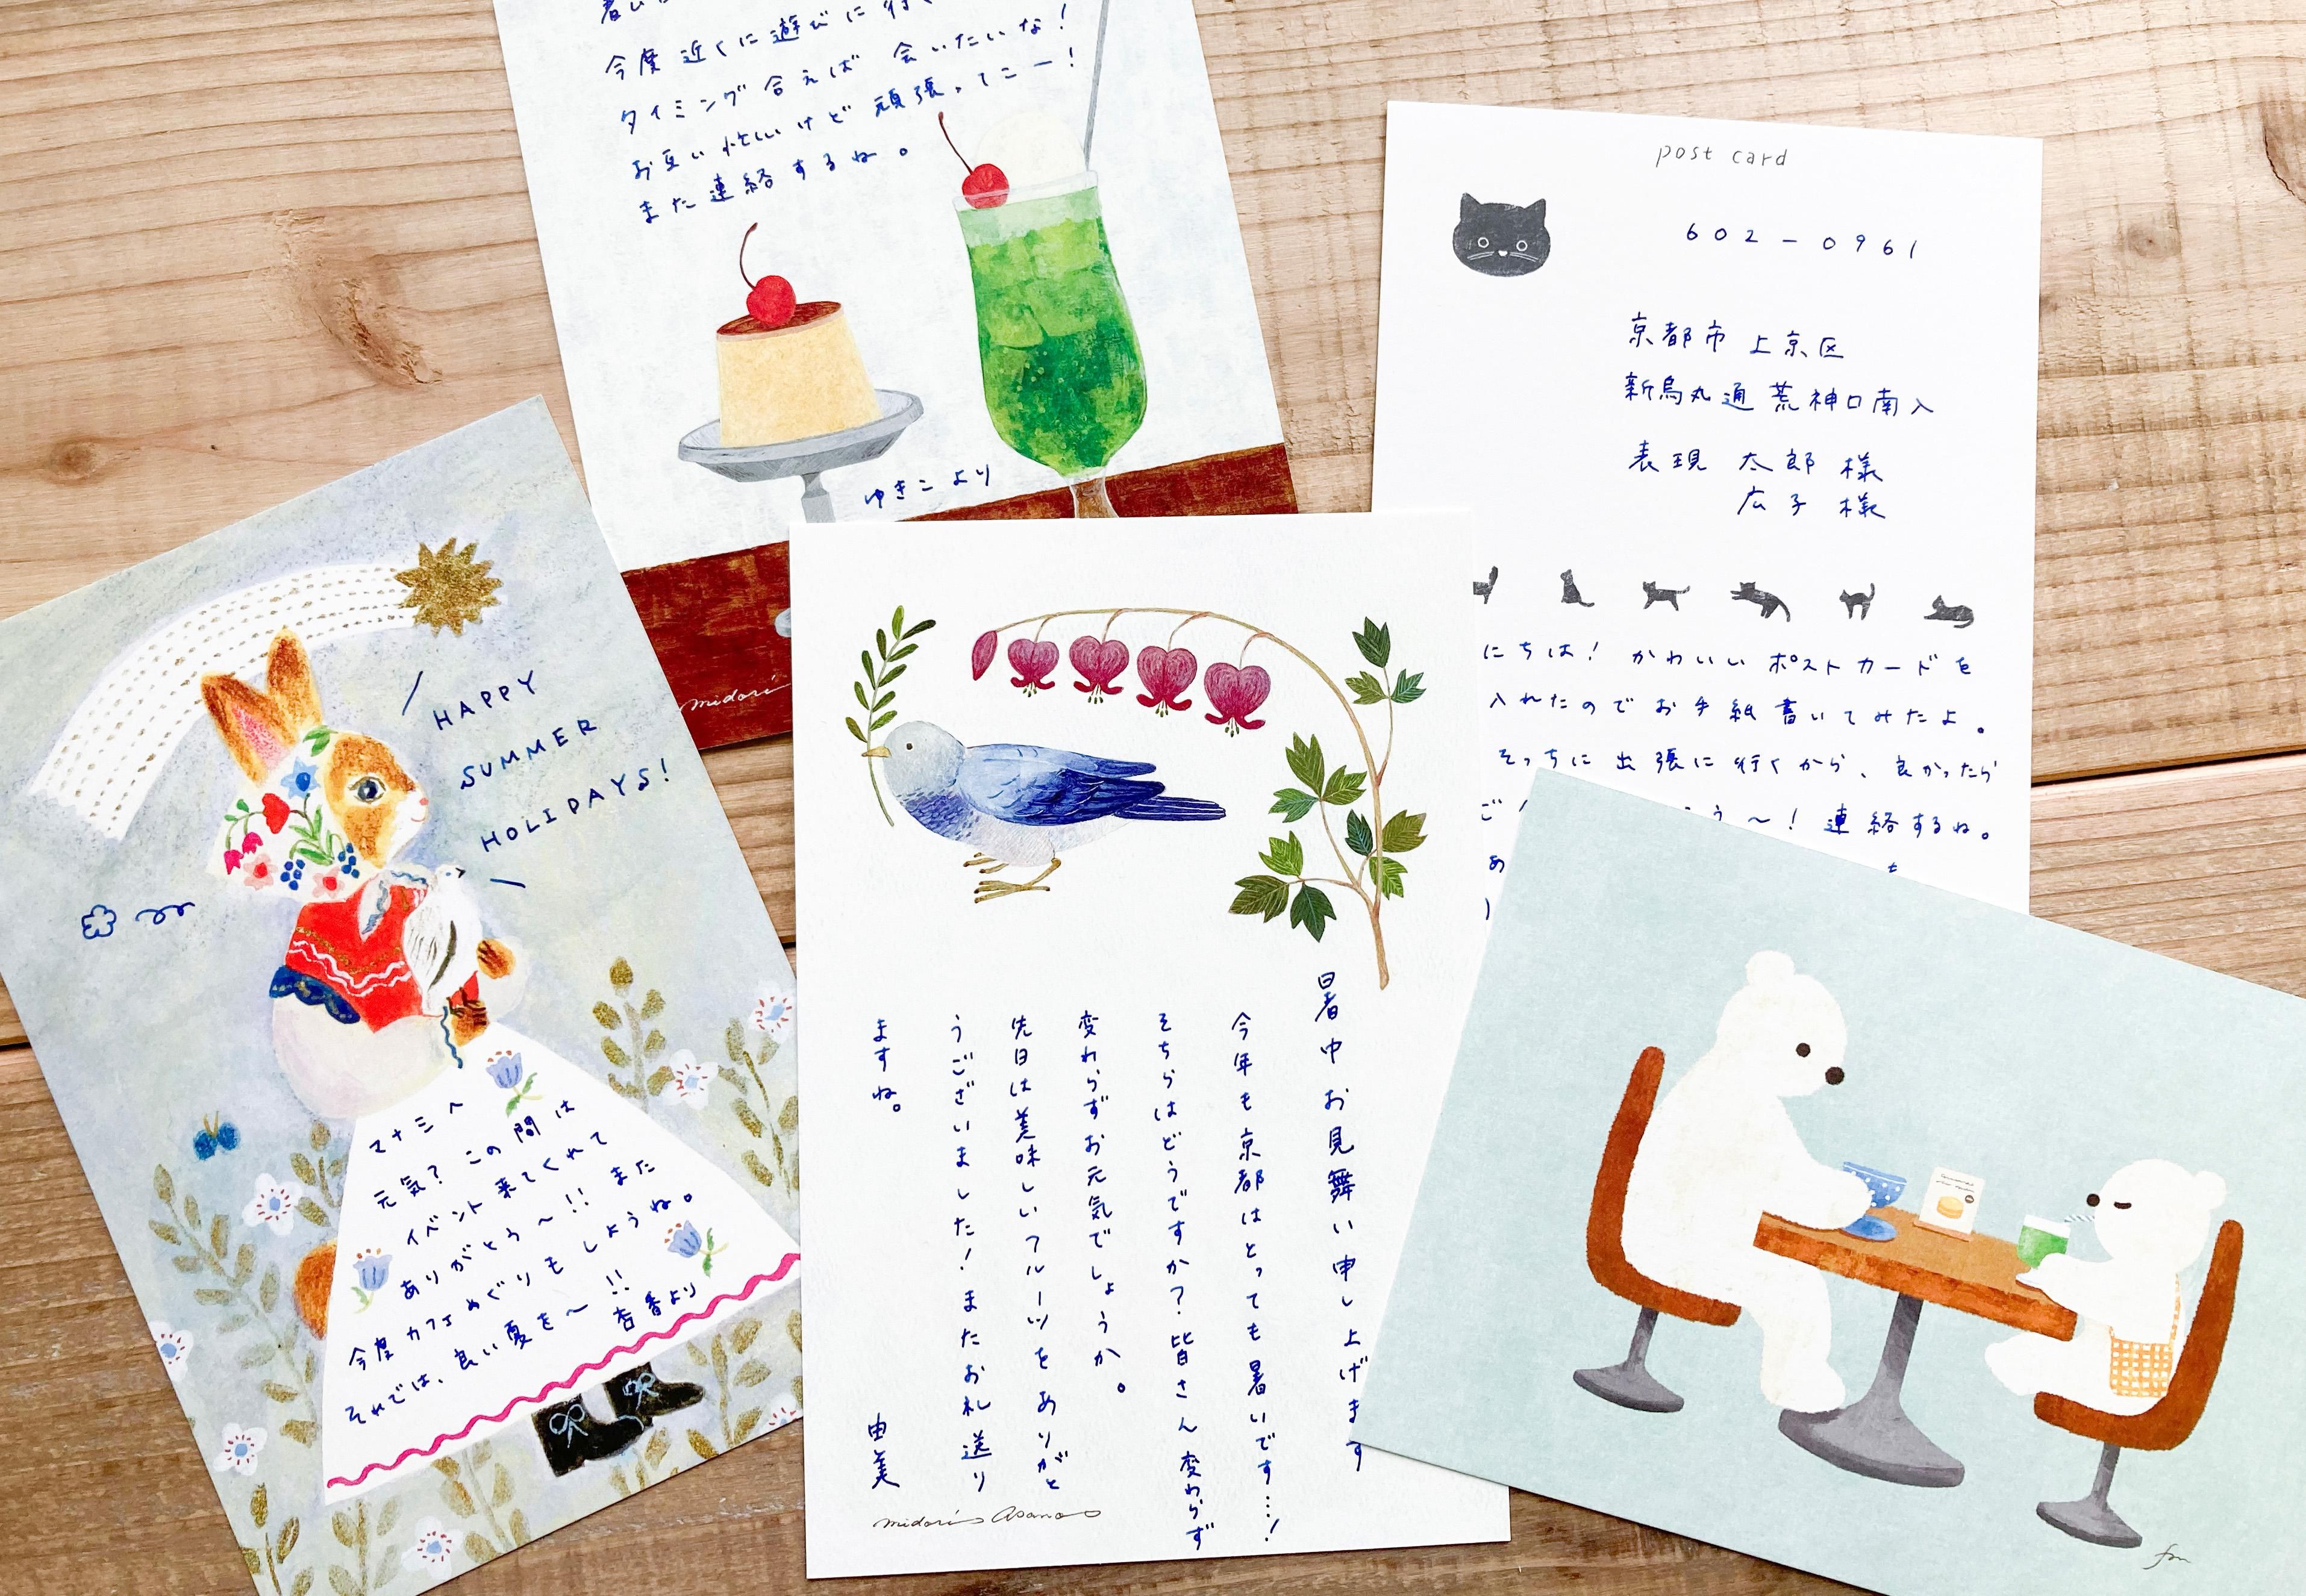 今度近くに遊びに行
タイミング合えば 会いたいな！
お互い忙しいけど頑張ってこー！
また連絡するね。
ゆきこより
midori
post card
602-0961
京都市上京区
新烏丸通荒神口南入
表現 太郎 様
広子 様
にちは！かわいいポストカードを
入れたのでお手紙書いてみたよ。
そっちに出張に行くから、良かったら
ご
う〜！連絡するね。
あ
HAPPY
SUMMER
HOLIDAYS!
マナミへ
元気？この間は
イベント来てくれて
ありがとう〜!!また
今度カフェめぐりもしようね。
それでは、良い夏を〜!!
杏香より
暑中お見舞い申し上げます
今年も京都はとっても暑いです…！
そちらはどうですか？皆さん変わらず
変わらずお元気でしょうか。
先日は美味しいフルーツをありがと
うございました！またお礼送り
ますね。
由美
midori asano
fm